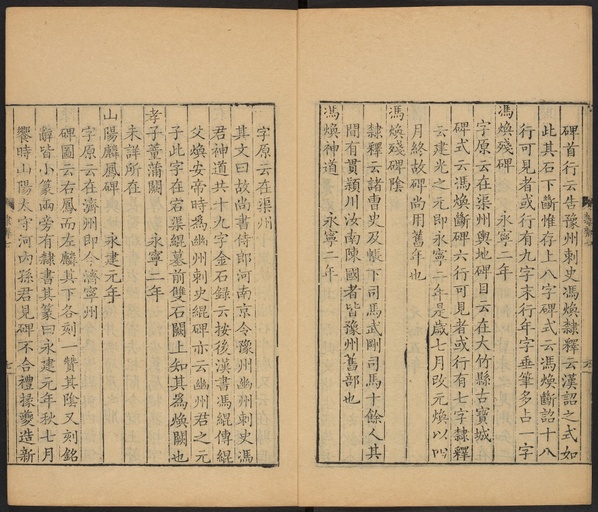 碑首行云告豫州刺史馮煥隸釋云漢詔之式如
此其石下斷惟存上八字碑式云馮煥斷詔十八
行可見者或行有九字末行年字垂筆多占一字
馮煥殘碑 永寧二年
字原云在渠州輿地碑目云在大竹縣古賨城
碑式云馮煥斷碑六行可見者或行有七字隸釋
云建光之元即永寧二年是歲七月改元煥以四
月終故碑尚用舊年也
馮煥殘碑陰
隸釋云諸曹史及帳下司馬武剛司馬十餘人其
間有貫潁川汝南陳國者皆豫州舊部也
馮煥神道 永寧二年
字原云在渠州
其文曰故尚書侍郎河南京令豫州幽州刺史馮
君神道共十九字金石錄云按後漢書馮緄傳緄
父煥安帝時為幽州刺史緄碑亦云幽州君之元
子此字在宕渠緄墓前雙石闕上知其為煥闕也
孝子董蒲闕 永寧二年
未詳所在
山陽麟鳳碑 永建元年
字原云在濟州即今濟寧州
碑圖云右鳳而左麟其下各刻一贊其陰又刻銘
辭皆小篆兩旁有隸書其篆曰永建元年秋七月
饗時山陽太守河內孫君見碑不合禮掾夔造新